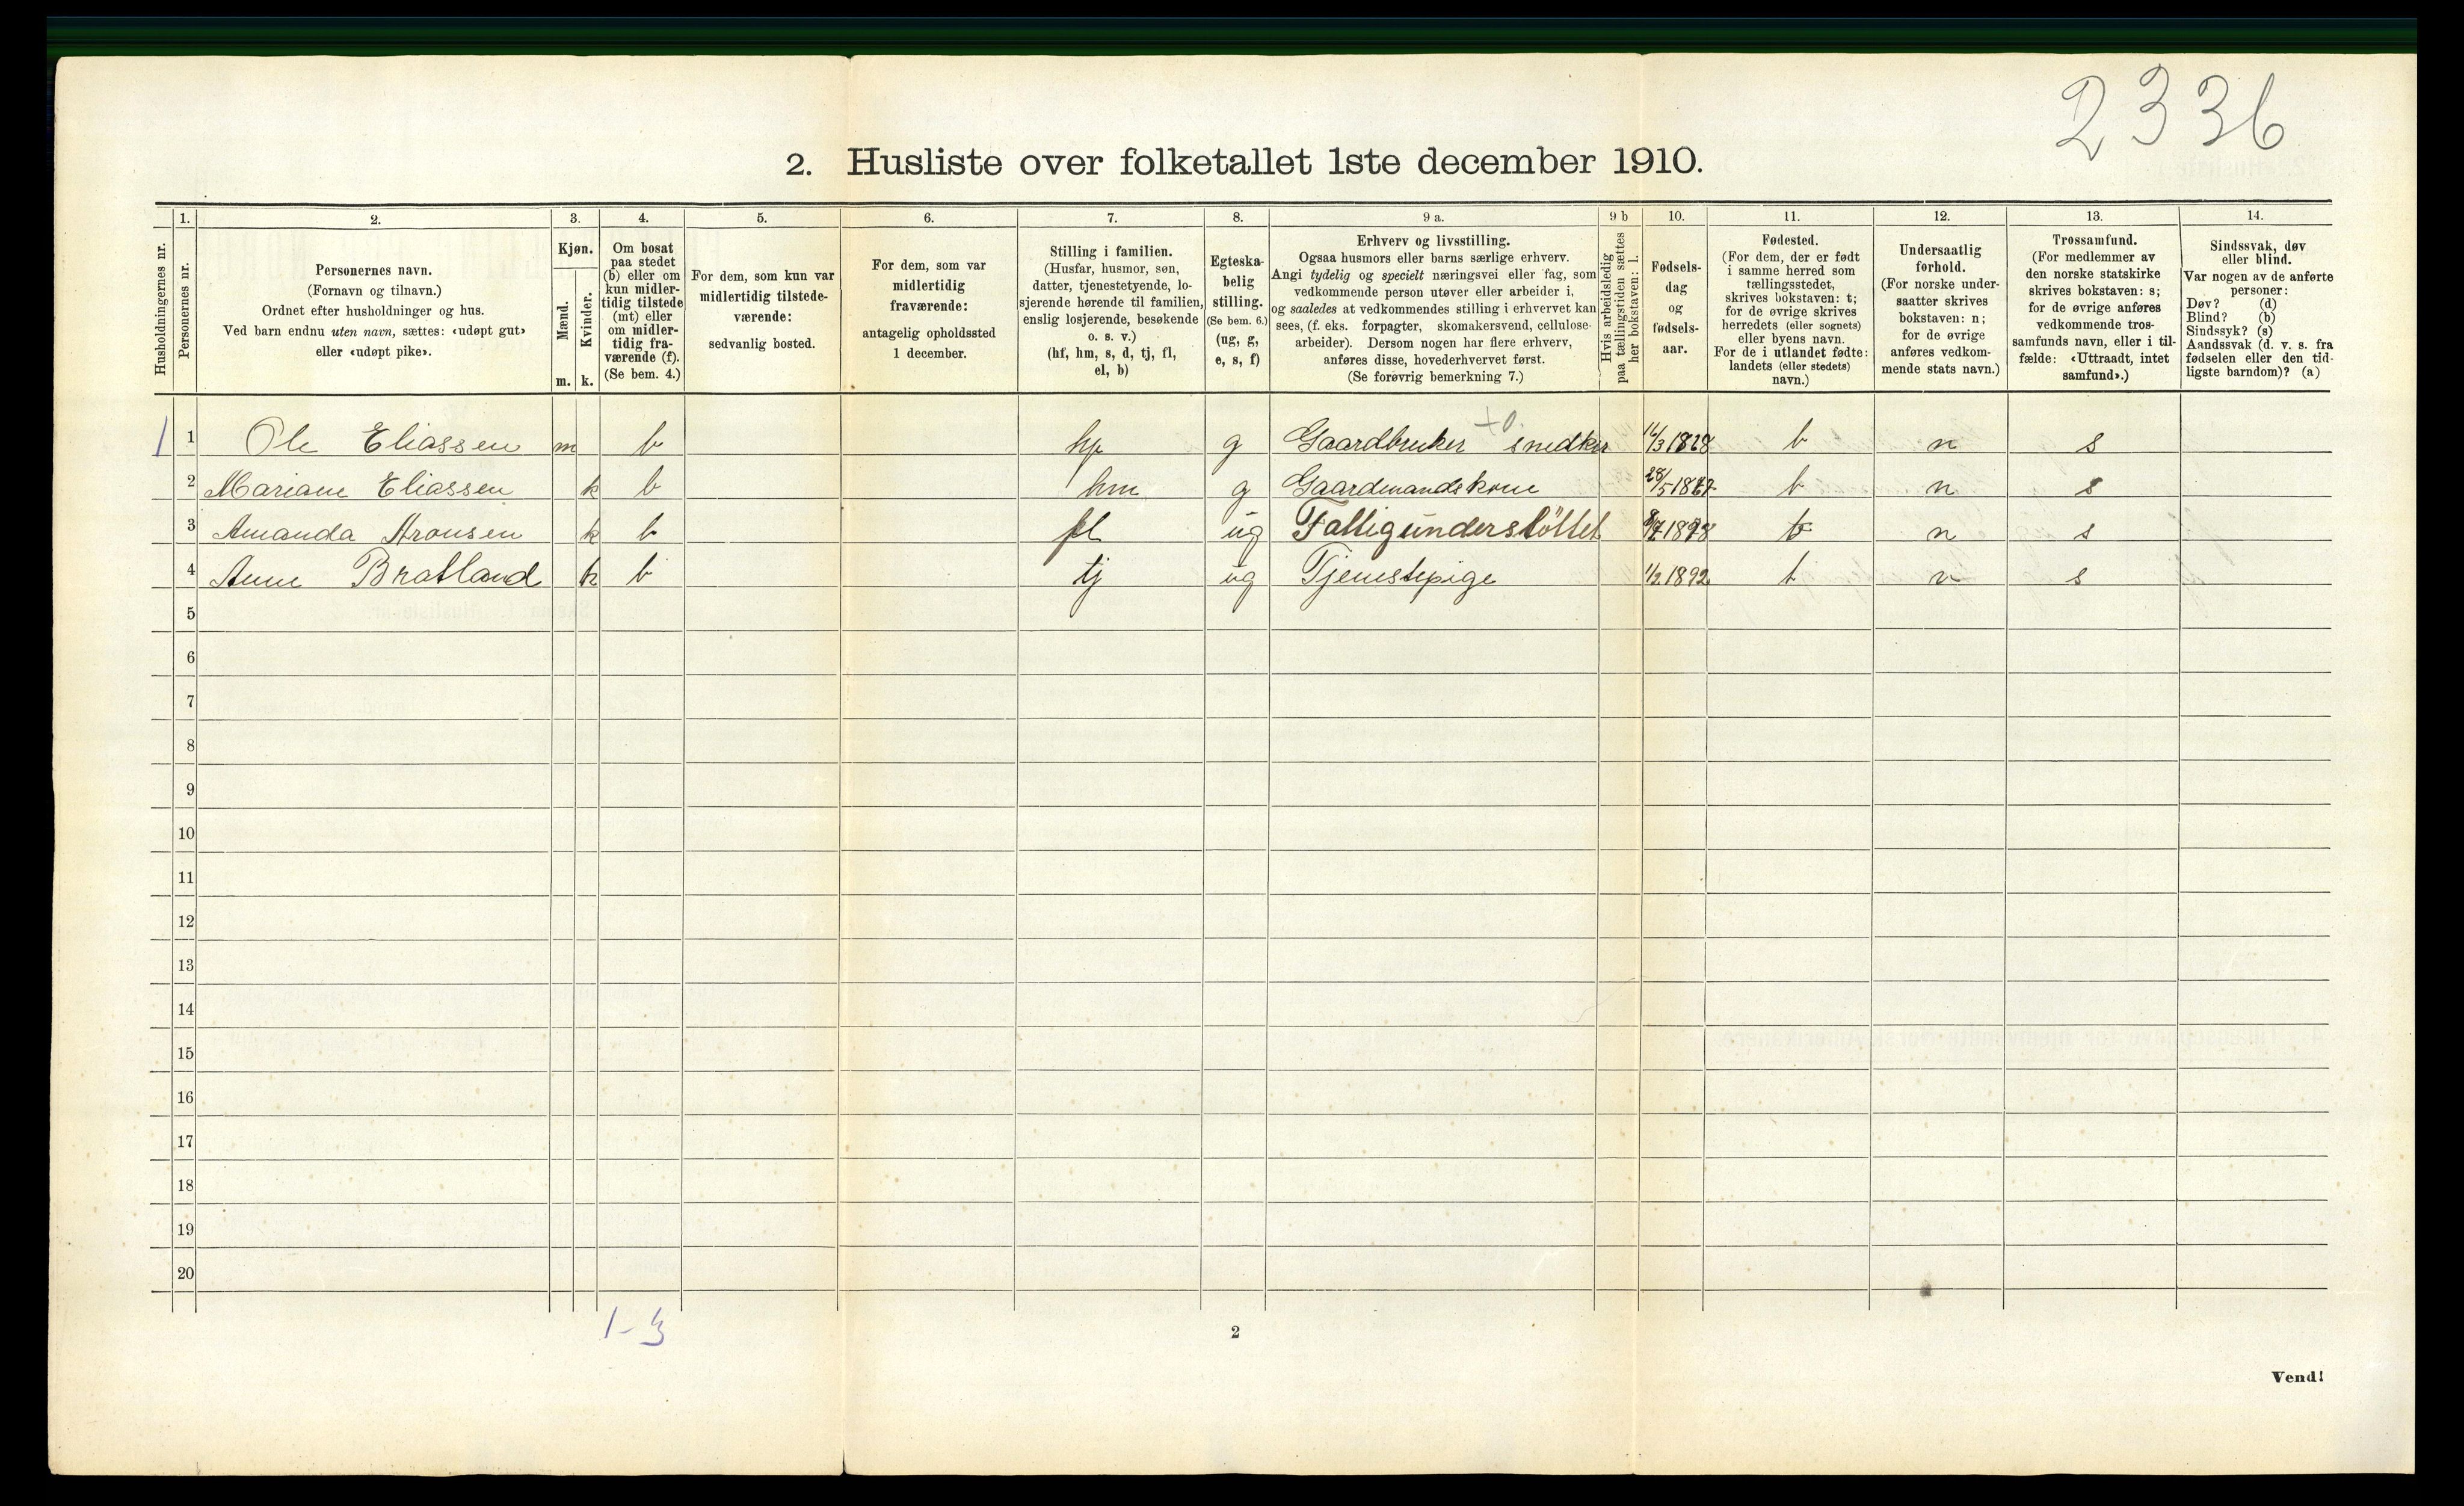 2336
2. Husliste over folketallet 1ste december 1910.
Husholdningernes nr.
1.
Personernes nr.
2.
Personernes navn.
(Fornavn og tilnavn.)
Ordnet efter husholdninger og hus.
Ved barn endnu uten navn, sættes: «udøpt gut»
eller «udøpt pike».
3.
Kjøn.
Mænd.
Kvinder.
m. k.
4.
Om bosat
paa stedet
(b) eller om
kun midler-
tidig tilstede
(mt) eller
om midler-
tidig fra-
værende (f).
(Se bem. 4.)
5.
For dem, som kun var
midlertidig tilstede-
værende:
sedvanlig bosted.
6.
For dem, som var
midlertidig
fraværende:
antagelig opholdssted
1 december.
7.
Stilling i familien.
(Husfar, husmor, søn,
datter, tjenestetyende, lo-
sjerende hørende til familien,
enslig losjerende, besøkende
o. s. v.)
(hf, hm, s, d, tj, fl,
el, b)
8.
Egteska-
belig
stilling.
(Se bem. 6.)
(ug, g,
e, s, f)
9 a.
Erhverv og livsstilling.
Ogsaa husmors eller barns særlige erhverv.
Angi tydelig og specielt næringsvei eller fag, som
vedkommende person utøver eller arbeider i,
og saaledes at vedkommendes stilling i erhvervet kan
sees, (f. eks. forpagter, skomakersvend, cellulose-
arbeider). Dersom nogen har flere erhverv,
anføres disse, hovederhvervet først.
(Se forøvrig bemerkning 7.)
9 b
Hvis arbeidsledig
paa tællingstiden sættes
her bokstaven: l.
10.
Fødsels-
dag
og
fødsels-
aar.
11.
Fødested.
(For dem, der er født
i samme herred som
tællingsstedet,
skrives bokstaven: t;
for de øvrige skrives
herredets (eller sognets)
eller byens navn.
For de i utlandet fødte:
landets (eller stedets)
navn.)
12.
Undersaatlig
forhold.
(For norske under-
saatter skrives
bokstaven: n;
for de øvrige
anføres vedkom-
mende stats navn.)
13.
Trossamfund.
(For medlemmer av
den norske statskirke
skrives bokstaven: s;
for de øvrige anføres
vedkommende tros-
samfunds navn, eller i til-
fælde: «Uttraadt, intet
samfund».)
14.
Sindssvak, døv
eller blind.
Var nogen av de anførte
personer:
Døv? (d)
Blind? (b)
Sindssyk? (s)
Aandssvak (d. v. s. fra
fødselen eller den tid-
ligste barndom)? (a)
+0.
1 1 Ole Eliassen m b hf g Gaardbruker snedker 16/3 1828 t n s
2 Mariane Eliassen k b hm g Gaardmandskone 28/5 n s
3 Amanda Aronsen k b fl ug Fattigunderstöttet t n s
4 Anne Bratland k b tj ug Tjenestepige 1/2 1892 t n s
5
6
7
8
9
10
11
12
13
14
15
16
17
18
19
20
1-3
2
Vend!